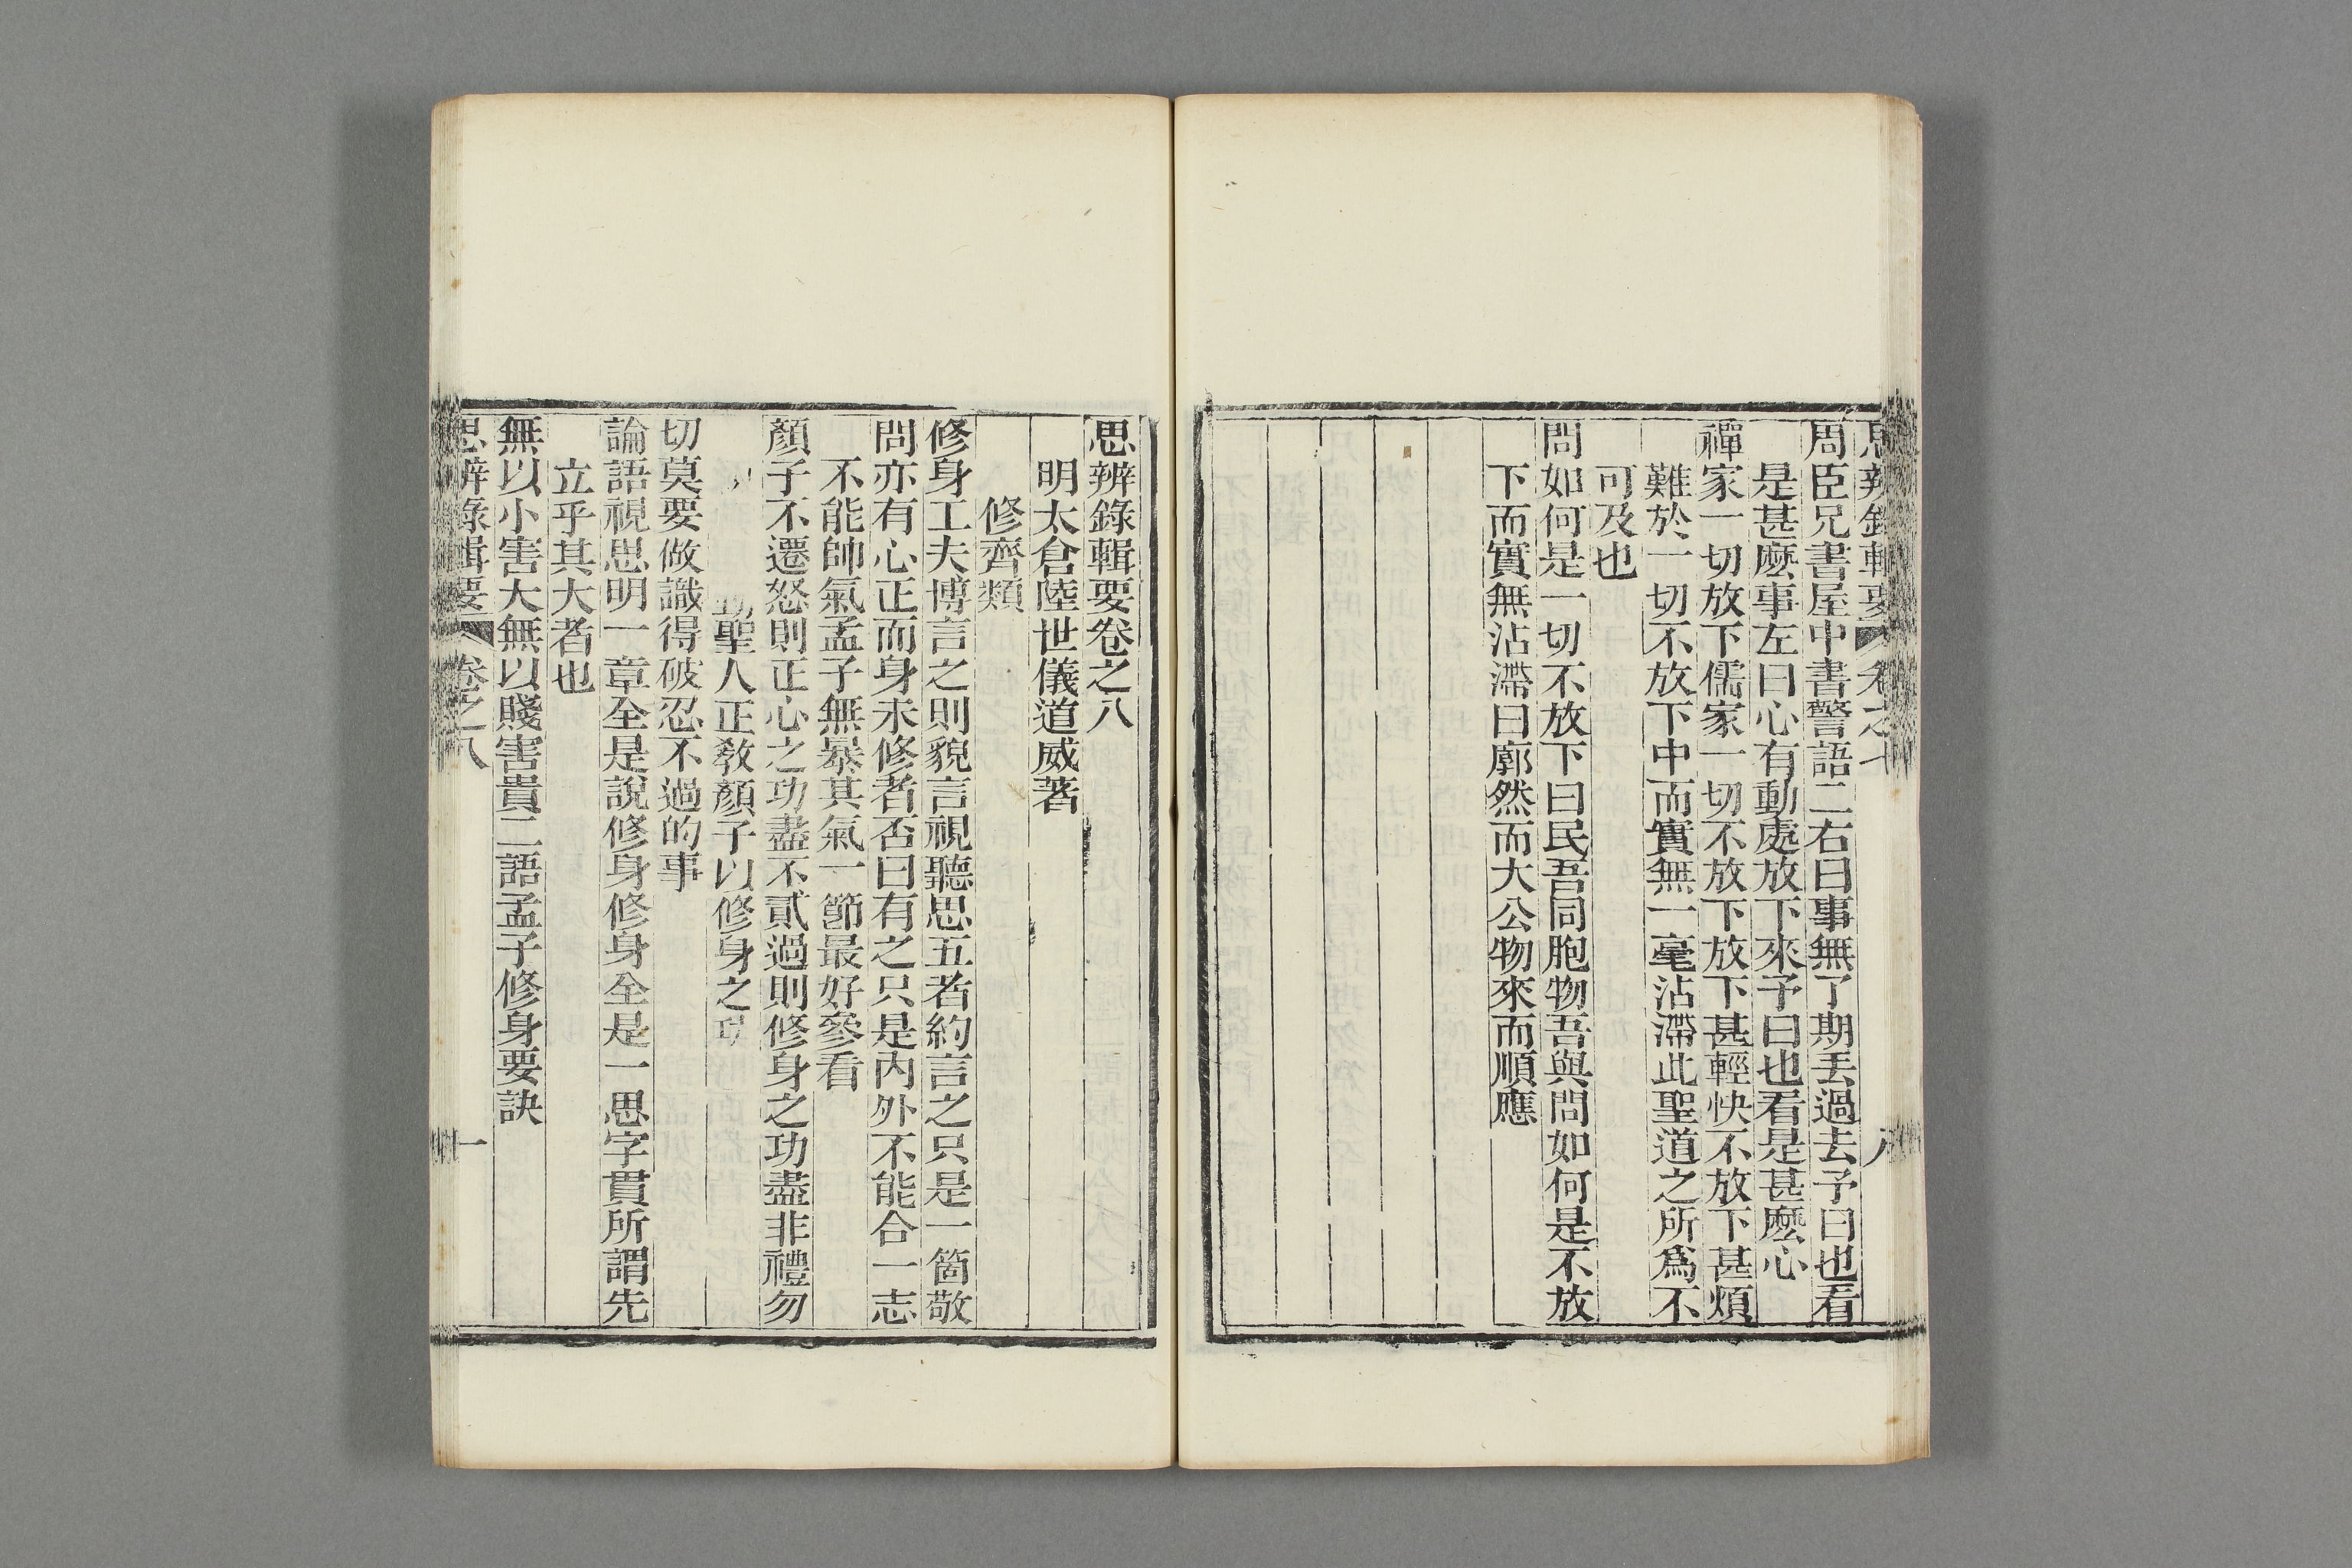 思辨錄輯要 卷之七 八
周臣兄書屋中書警語二右曰事無了期丟過去予曰也看
是甚麽事左曰心有動處放下來予曰也看是甚麽心
禪家一切放下儒家一切不放下放下甚輕快不放下甚煩
難於一切不放下中而實無一毫沾滯此聖道之所爲不
可及也
問如何是一切不放下曰民吾同胞物吾與問如何是不放
下而實無沾滯曰廓然而大公物來而順應
思辨錄輯要卷之八
明太倉陸世儀道威著
修齊類
修身工夫博言之則貌言視聽思五者約言之只是一箇敬
問亦有心正而身未修者否曰有之只是內外不能合一志
不能帥氣孟子無暴其氣一節最好參看
顏子不遷怒則正心之功盡不貳過則修身之功盡非禮勿
動聖人正敎顏子以修身之功
切莫要做識得破忍不過的事
論語視思明一章全是說修身修身全是一思字貫所謂先
立乎其大者也
無以小害大無以賤害貴二語孟子修身要訣
思辨錄輯要 卷之八 一